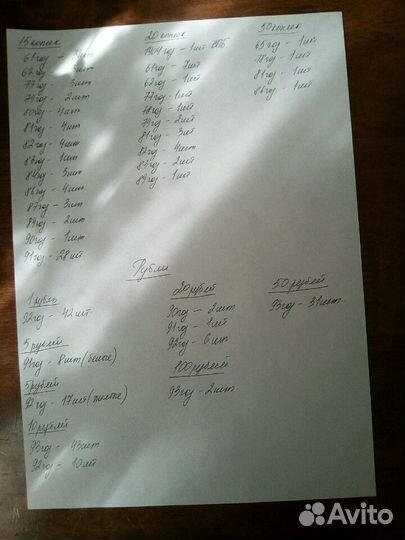 15 копеек
61год - шт
62год - шт
77год - 3шт
79год - 2шт
80год - 4шт
81год - 4шт
82год - 4шт
83год - 1шт
84год - 3шт
86год - 4шт
87год - 3шт
89год - 2шт
90год - 1шт
91год - 28шт
20 копеек
год - 1шт СПБ
61год - 7шт
62год - 1шт
77год - 1шт
78год - 1шт
79год - 2шт
81год - 3шт
82год - 4шт
83год - 2шт
89год - 1шт
50 копеек
65год - 1шт
78год - 1шт
81год - 1шт
86год - 1шт
Рубли
1 рубль
92год - 42шт
5 рублей
91год - 8шт (белые)
5 рублей
92год - 17шт (желтые)
10 рублей
93год - 43шт
92год - 10шт
20 рублей
90год - 2шт
91год - 1шт
92год - 6шт
100 рублей
93год - 2шт
50 рублей
93год - 31шт.
Avito